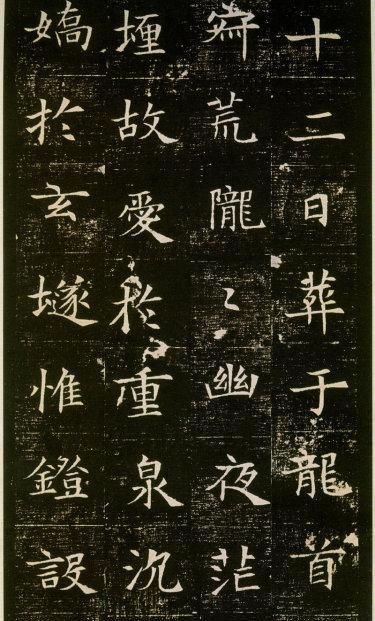 十二日葬于龍首
荒隴〻幽夜茫
堙故愛於重泉沉
嬌於玄𡑞惟鐙設